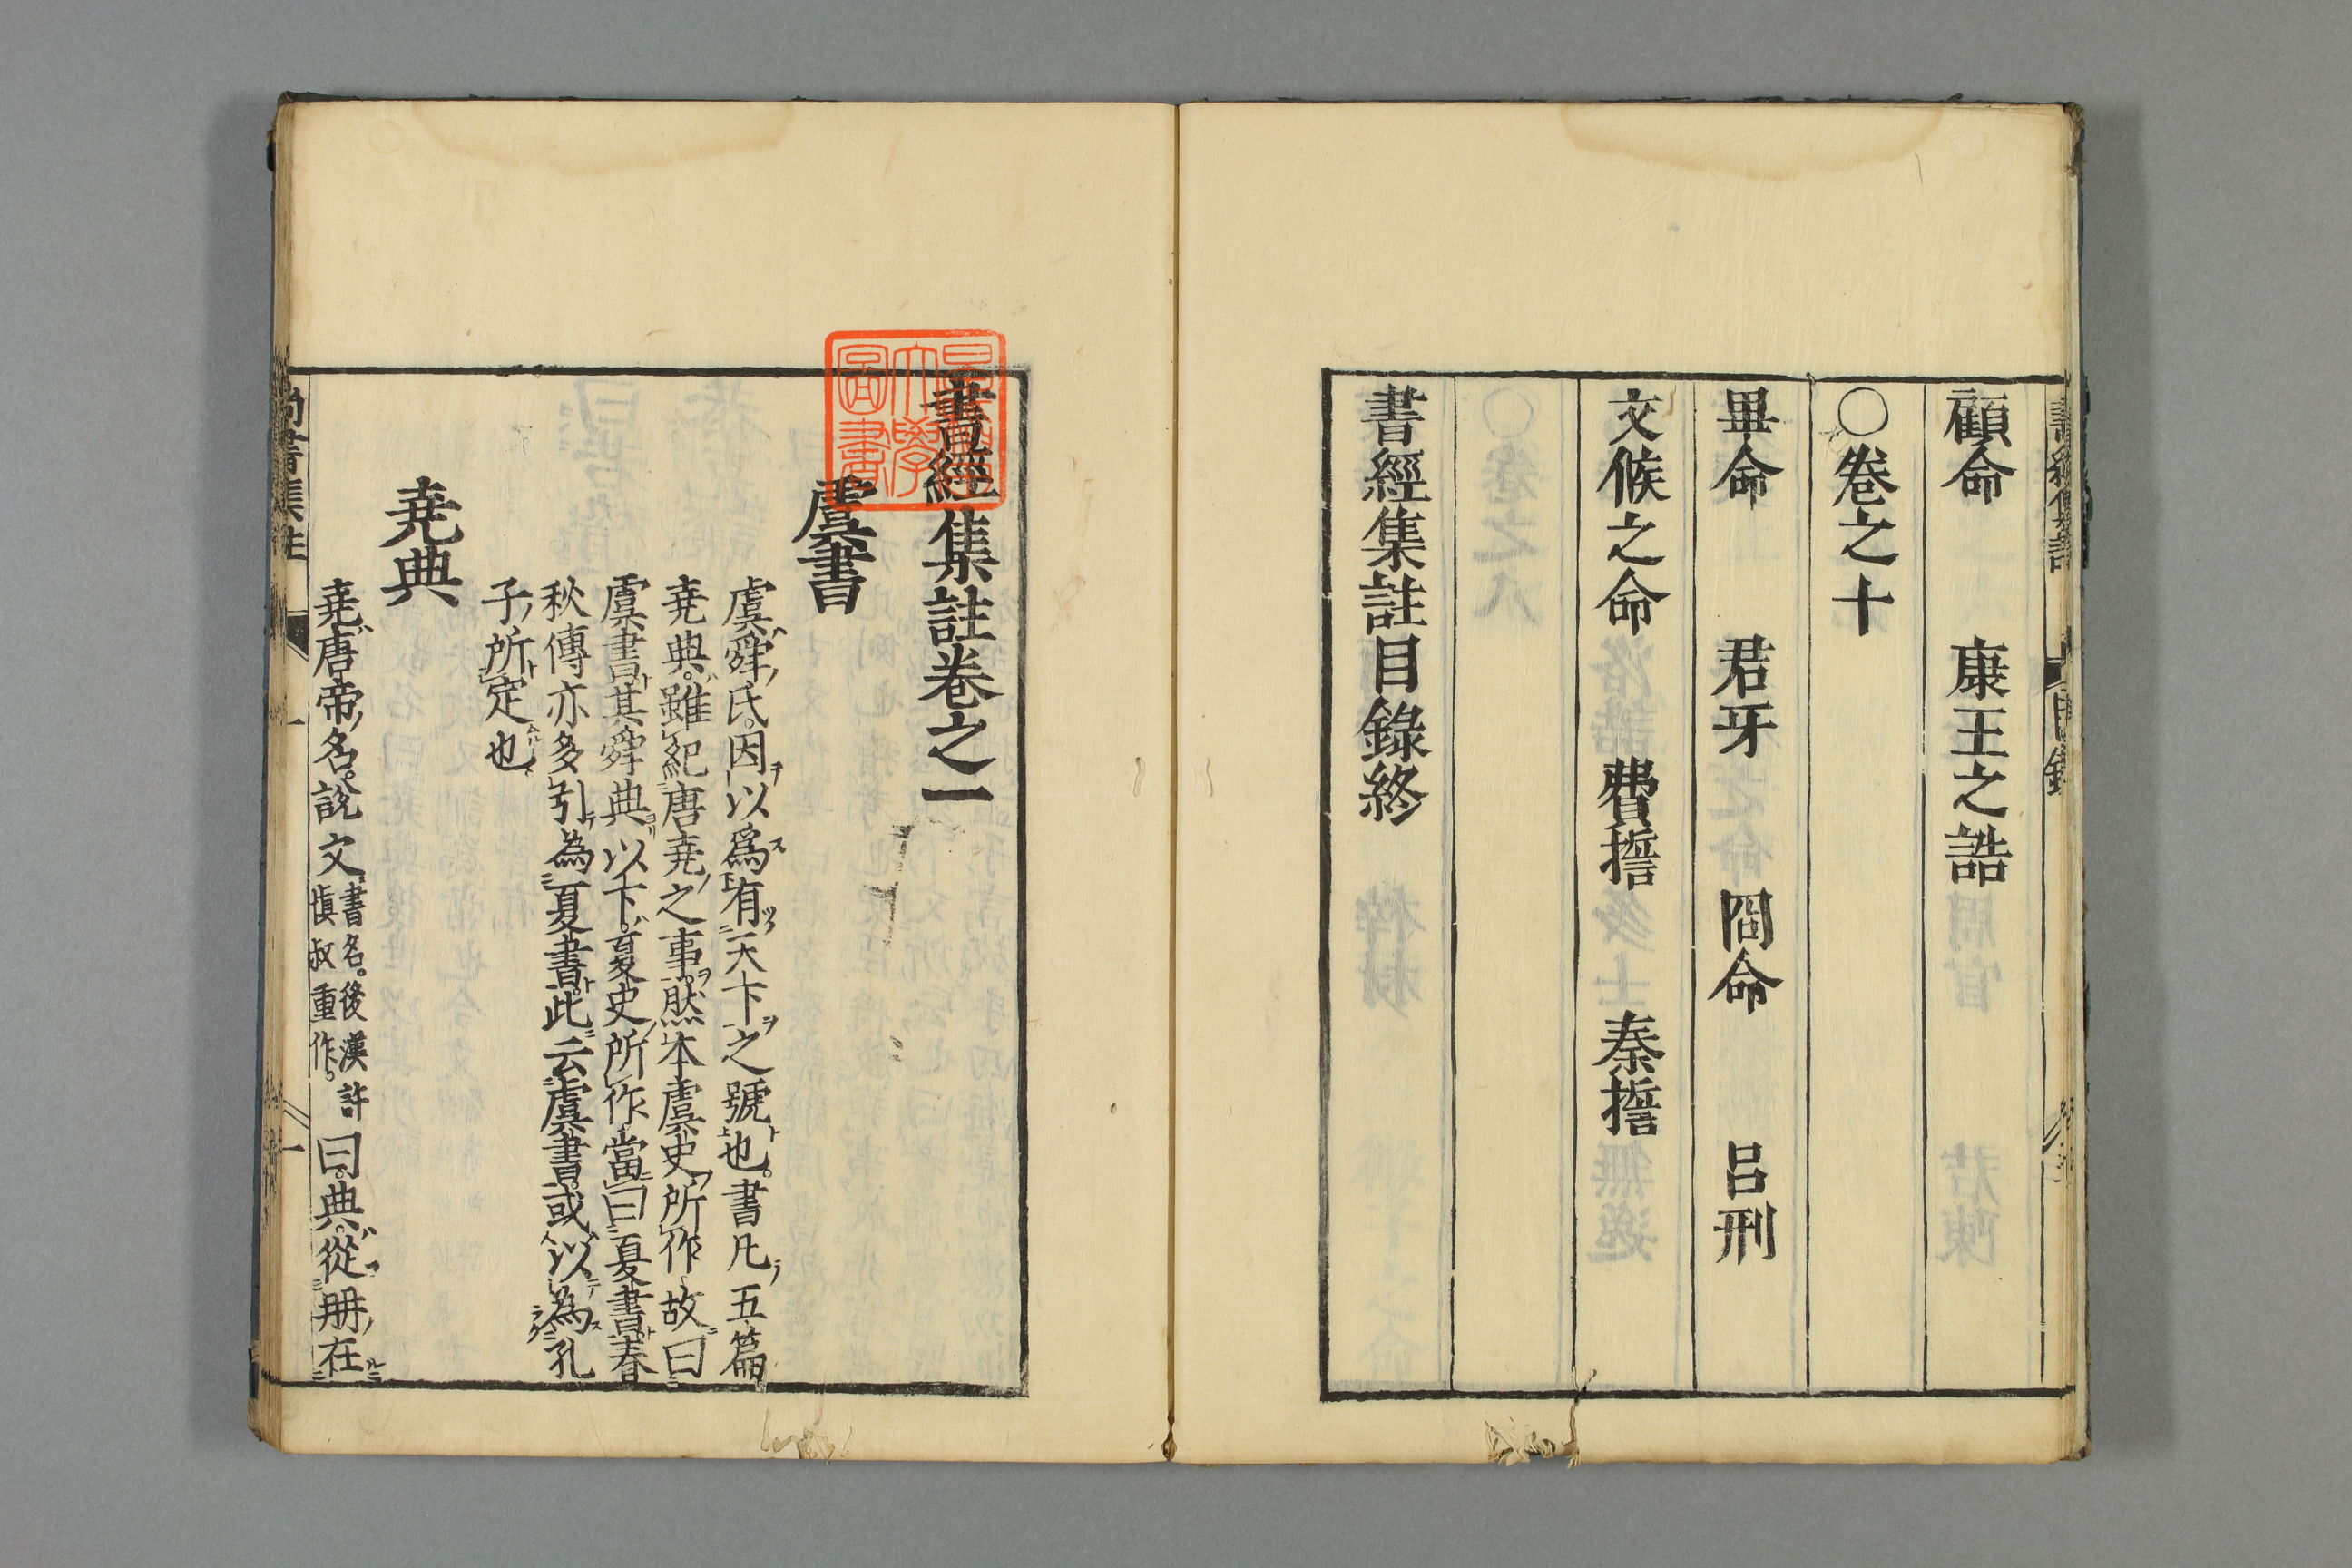 顧命 康王之誥
〇卷之十
畢命 君牙 冏命 呂刑
文侯之命 費誓 秦誓
書經集註目錄終
書經集註卷之一
虞書
虞舜氏。因以爲有天下之號也。書凡五篇
堯典。雖紀唐堯之事。然本虞史所作。故曰
虞書。其舜典以下。夏史所作。當曰夏書。春
秋傳亦多引為夏書。此云虞書。或以為孔
子所定也
堯典
堯唐帝名。說文書名。後漢許慎叔重作。曰。典。從冊在
尚書集註
一